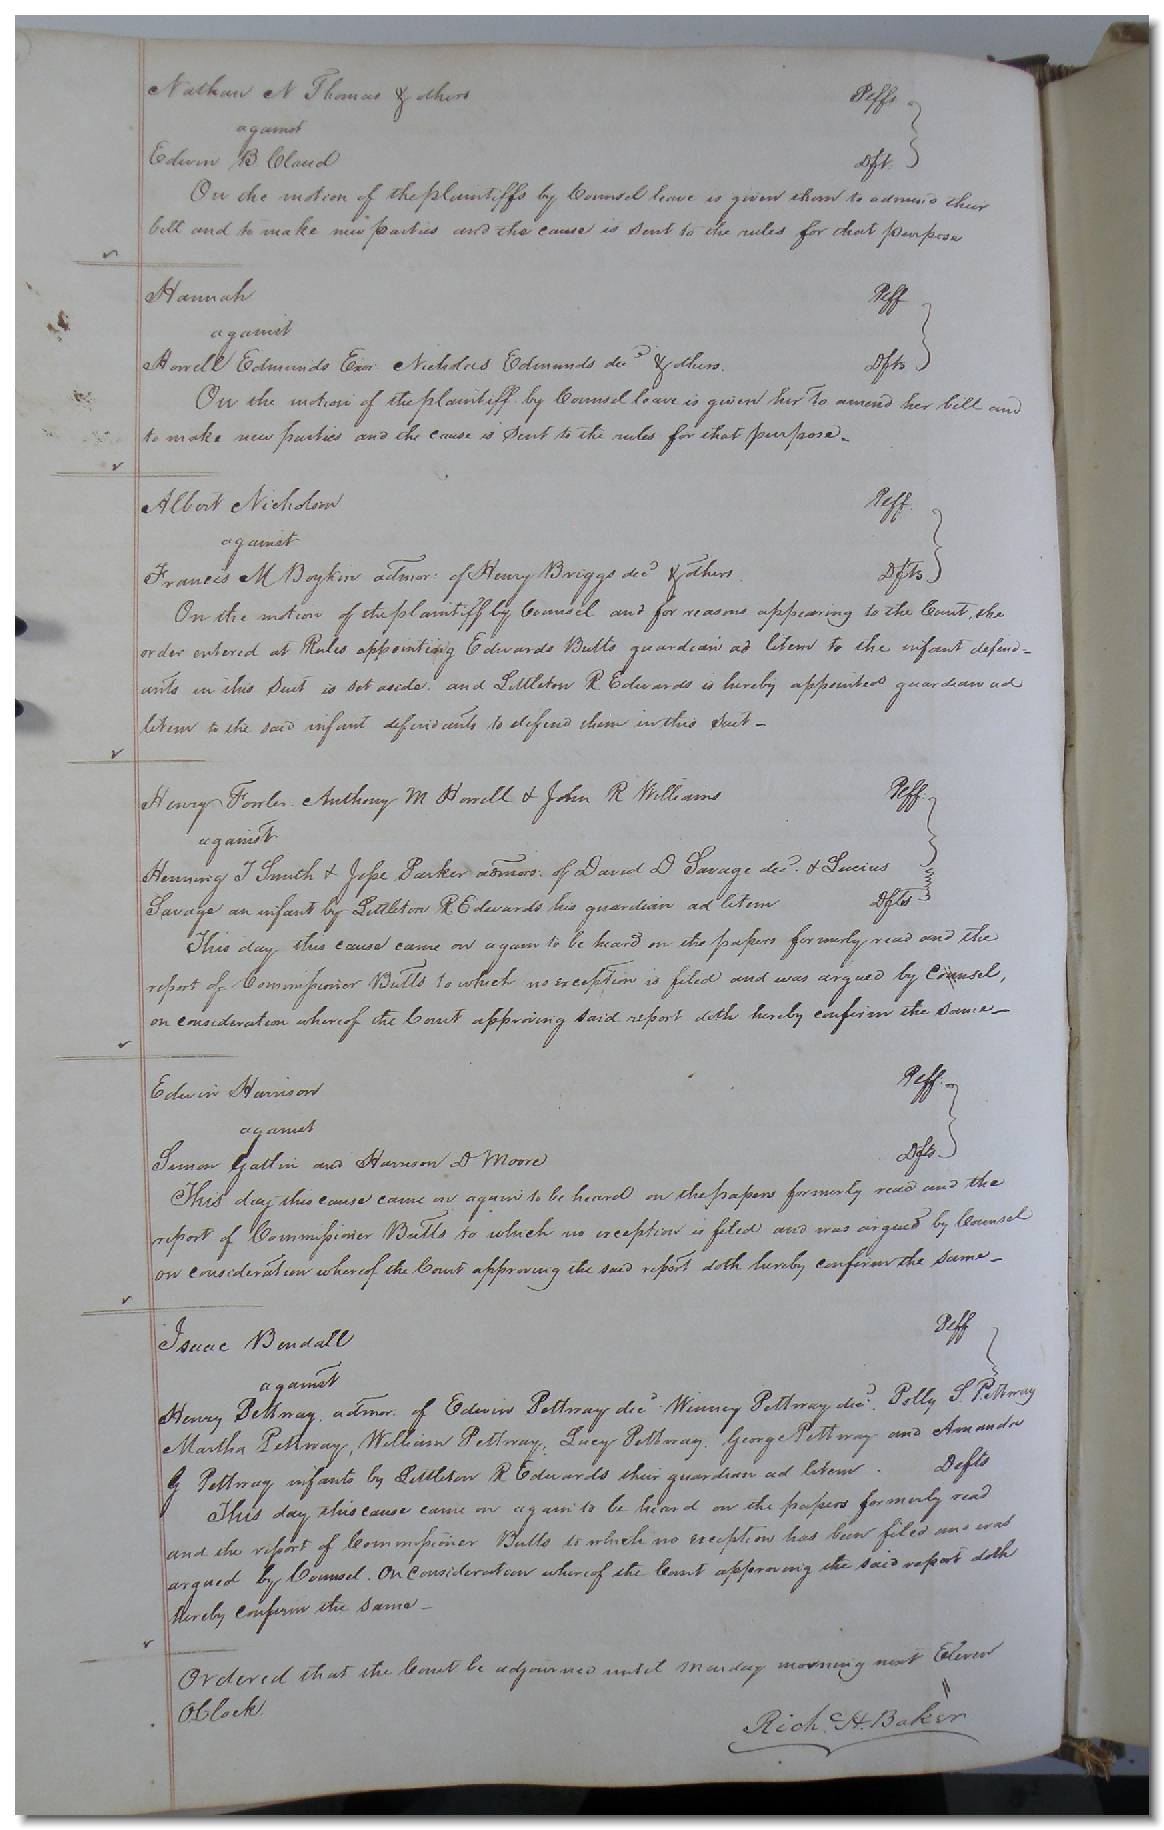 Nathan N Thomas & others Peffs
against
Edwin B Claud Dft.
On the motion of the plaintiffs by Counsel leave is given them to amend their
bill and to make new parties and the cause is sent to the rules for that purpose
Hannah Peff
against
Howell Edmunds Exor Nicholas Edmunds decd & others. Dfts
On the motion of the plaintiff by Counsel leave is given her to amend her bill and
to make new parties and the cause is sent to the rules for that purpose -
Albert Nicholson Peff.
against
Francis M Boykin admor: of Henry Briggs decd & others. Dfts
On the motion of the plaintiff by Counsel and for reasons appearing to the Court, the
order entered at Rules appointing Edwards Butts guardian ad litem to the infant defend-
ants in this suit is set aside. and Littleton R Edwards is hereby appointed guardian ad
litem to the said infant defendants to defend them in this suit -
Henry Fowler. Anthony M Howell & John R Williams Peff.
against
Henning T Smith & Jesse Parker admors. of David D Savage decd. & Lucius
Savage an infant by Littleton R Edwards his guardian ad litem Dfts
This day this cause came on again to be heard on the papers formerly read and the
report of Commissioner Butts to which no exception is filed and was argued by Counsel,
on consideration whereof the Court approving said report doth hereby confirm the same -
Edwin Harrison Peff.
against
Simon Gatlin and Harrison D Moore Dfts.
This day this cause came on again to be heard on the papers formerly read and the
report of Commissioner Butts to which no exception is filed and was argued by Counsel
on consideration whereof the Court approving the said report doth hereby confirm the same -
Isaac Bendall Peff
against
Henry Pettway, admor. of Edwin Pettway decd. Winney Pettway decd. Polly S. Pettway
Martha Pettway, William Pettway, Lucy Pettway. George Pettway and Amanda
G Pettway infants by Littleton R Edwards their guardian ad litem. Defts
This day this cause came on again to be heard on the papers formerly read
and the report of Commissioner Butts to which no exception has been filed and was
argued by Counsel. On consideration whereof the Court approving the said report doth
hereby confirm the same -
Ordered that the Court be adjourned until Monday morning next Eleven
OClock.
Richd. H. Baker